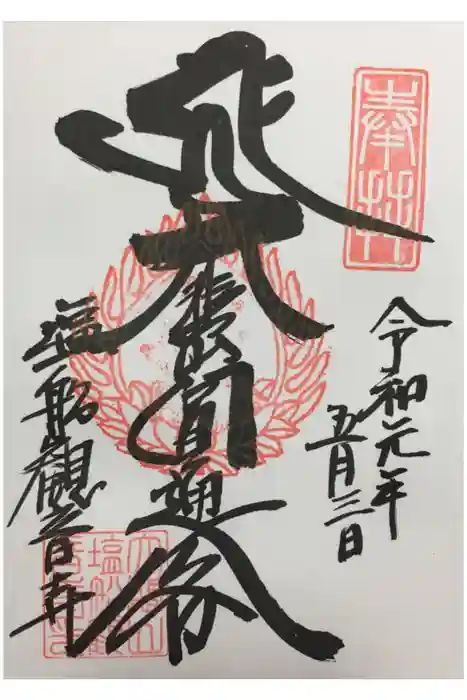 奉拝
令和元年
五月三日
大悲圓通閣
塩船観音寺